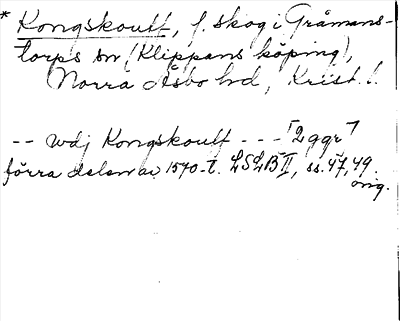 * Kongskoult, f. skog i Gråmans-
torps sn (Klippans köping),
Norra Åsbo hd, Krist. l.
-- wdj Kongskoult --- ⌈2 ggr⌉
förra delen av 1570-t. LSLB II, ss. 47, 49.
orig.